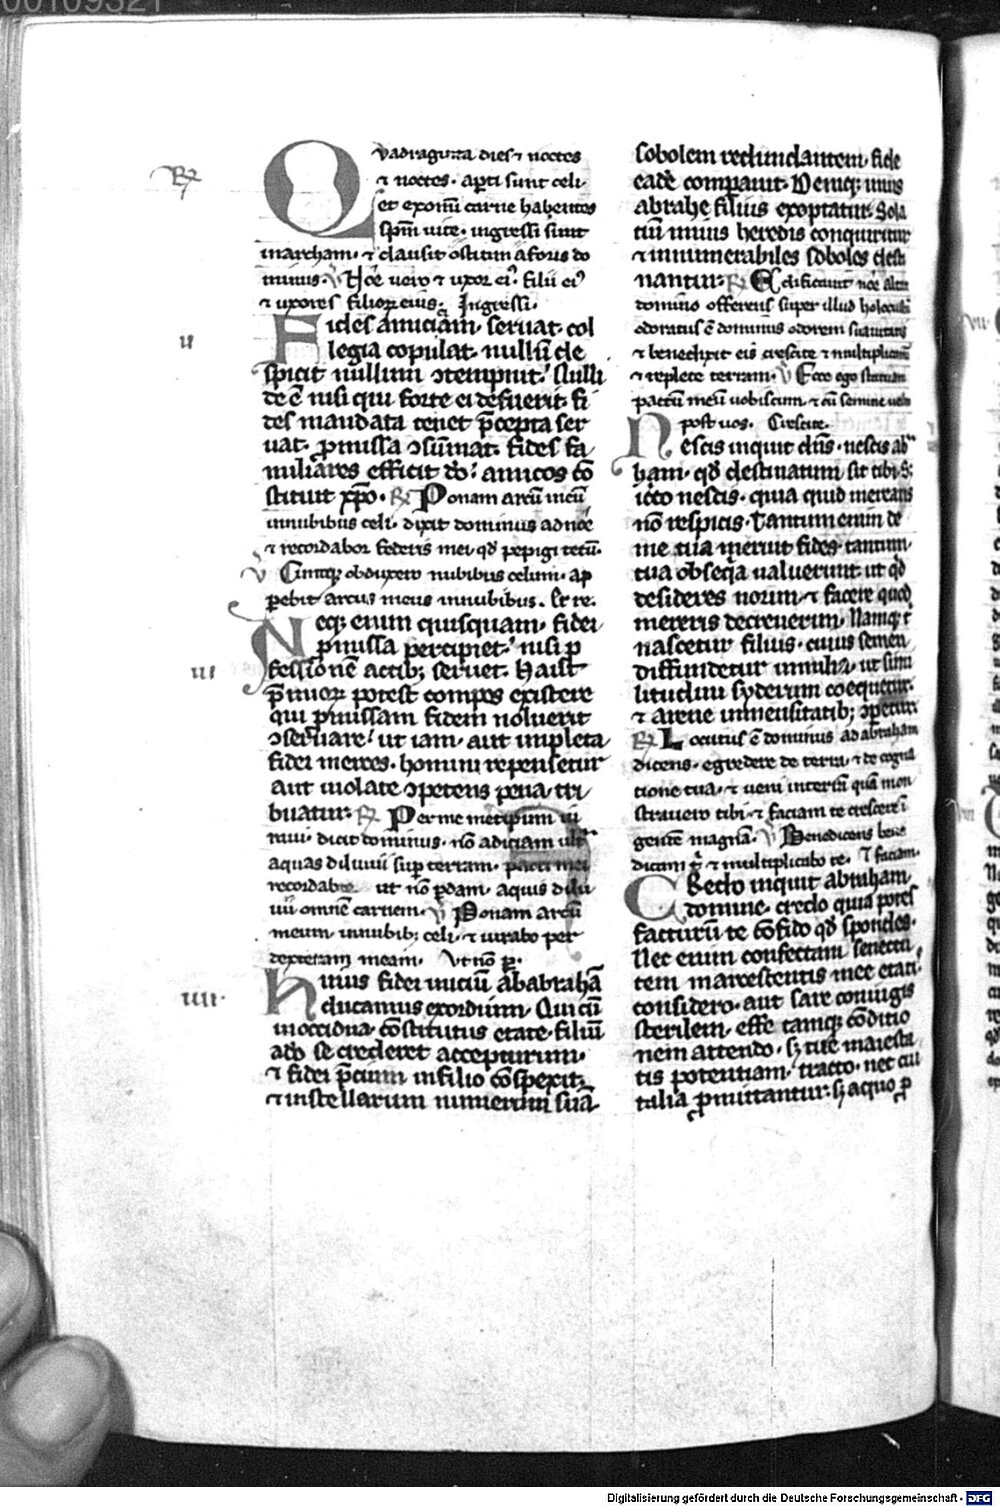 00109321
Quadraginta dies ⁊ noctes
⁊ noctes. apti sunt celi.
et ex omĩ carne habentes
spm̃ uite. ingressi sunt
marcham. ⁊ clausit ostium a foris do
minus. Noe uero ⁊ uxor ei. filii ei
⁊ uxores filioꝝ eius. Ingressi.
Fides amiciam seruat. col
legia copulat. nullũ de
spicit nullum ↄtempnit. Nulli
de ẽ nisi qui forte ei defuerit. fi
des mandata tenet p̃cepta ser
uat. ꝓmissa ↄsũmat. fides fa
miliares efficit do. amicos cõ
stituit xp̃o. ℟ Ponam arcũ meũ
in nubibus celi. dixit dominus ad noe
⁊ recordabor federis mei qd̃ pepigi tecũ.
℣ Cumqꝫ obduxero nubibus celum. ap
pebit arcus meus in nubibus. Et re.
Neqꝫ enim quisquam. fidei
ꝓmissa percipiet. nisi ꝓ
fessionẽ actibꝫ seruet. Haut
p̃mioꝝ potest compos existere
qui ꝓmissam fidem noluerit
ↄseruare. ut iam. aut impleta
fidei merces. homini rependetur
aut uiolate ↄpetens pena. tri
buatur. ℟ Per me metipsum iu
raui dicit dominus. nõ adiciam ult
aquas diluuii sup terram. pacti mei
recordabor ut nõ ꝑdam. aquis dilu
uii omnẽ carnem. ℣ Ponam arcũ
meum in nubibꝫ celi. ⁊ iurabo per
dexteram meam. Vt nõ ꝑ.
Huius fidei iniciũ ab abrahã
ducamus exordium. Qui cũ
in occidua. cõstitutus etate. filiũ
ado se crederet accepturum.
⁊ fidei p̃cium in filio cõspexit.
⁊ in stellarum numerum suã
sobolem redundantem. fide
eadẽ comparauit. Deniqꝫ unus
abrahe filius exoptatur. Sola
tiũ unius heredis conquiritur
⁊ innumerabiles soboles desti
nantur. ℟ Edificauit noe altare
domino offerens super illud holocausta
odoratus ẽ dominus odorem suauitatis
⁊ benedixit eis crescite ⁊ multiplicamĩ
⁊ replete terram. ℣ Ecce ego statuam
pactũ meũ uobiscum. ⁊ cũ semine uestro
post uos. Crescite.
Nescis inquit dñs. nescis ab
ham. qd̃ destinatum sit tibi. S;
icco nescis. quia quid merearis
nõ respicis. Tantum enim de
me tua meruit fides. tantum
tua obseqa ualuerunt ut qd̃
desideres norim. ⁊ facere quod
mereris decreuerim. Namqꝫ t
nascetur filius. cuius semen
diffundetur in milia. ut simi
litudini syderum coequetur.
⁊ arene inmensitatibꝫ ↄpetur
℟ Locutus ẽ dominus ad abraham
dicens. egredere de terra. ⁊ de cogna
tione tua. ⁊ ueni in terrã quã mon
strauero tibi. ⁊ faciam te crescere ĩ
gentẽ magnã. ℣ Benedicens bene
dicam t ⁊ multiplicabo te. ⁊ faciam.
Credo inquit abraham.
domine. credo quia potes
facturũ te cõfido qd̃ spondes.
Nec enim confectam senectu
tem marcescentis mee etati.
considero. aut sare coniugis
sterilem. esse tamqꝫ cõditio
nem attendo. sꝫ tue maiesta
tis potentiam. tracto. nec cui
talia ꝓmittantur. sꝫ a quo ꝓ
℟
ii
iii
iiii
Digitalisierung gefördert durch die Deutsche Forschungsgemeinschaft - DFG